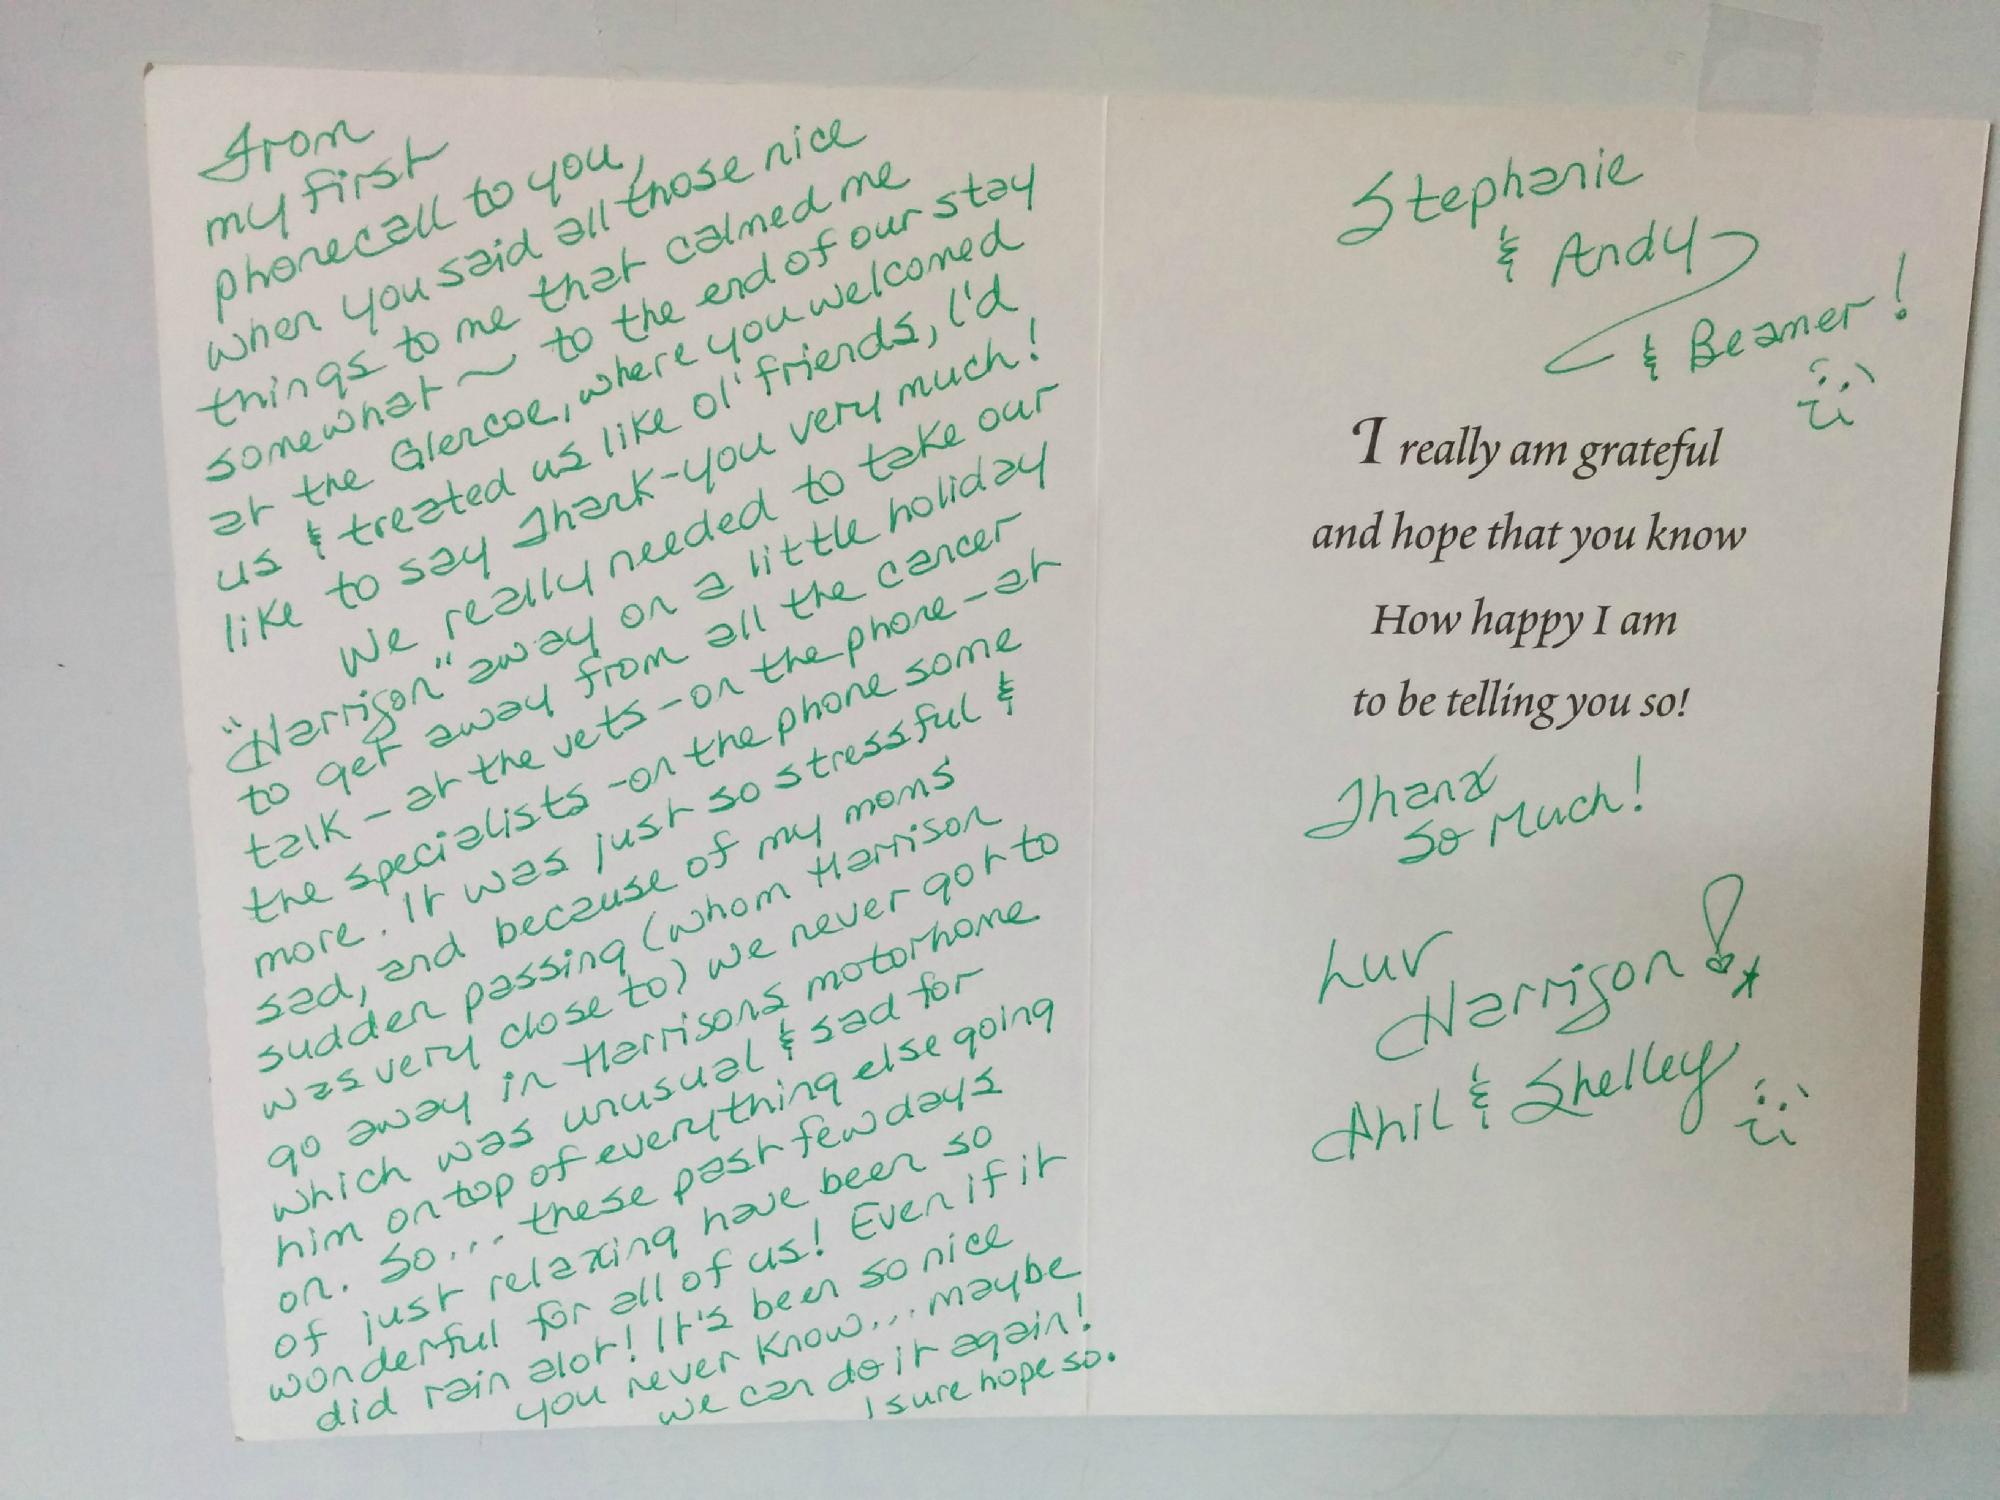 From
my first
phonecall to you,
when you said all those nice
things to me that calmed me
somewhat ~ to the end of our stay
at the Glencoe, where you welcomed
us & treated us like ol' friends, I'd
like to say Thank-you very much!
We really needed to take our
"Harrison" away on a little holiday
to get away from all the cancer
talk - at the vets - on the phone - at
the specialists - on the phone some
more. It was just so stressful &
sad, and because of my moms
sudden passing (whom Harrison
was very close to) we never got to
go away in Harrisons motorhome
which was unusual & sad for
him on top of everything else going
on. So... these past few days
of just relaxing have been so
wonderful for all of us! Even if it
did rain alot! It's been so nice
you never know... maybe
we can do it again!
I sure hope so.
Stephanie
& Andy
& Beamer!
I really am grateful
and hope that you know
How happy I am
to be telling you so!
Thanx
So Much!
Luv
Harrison!
Anil & Shelley